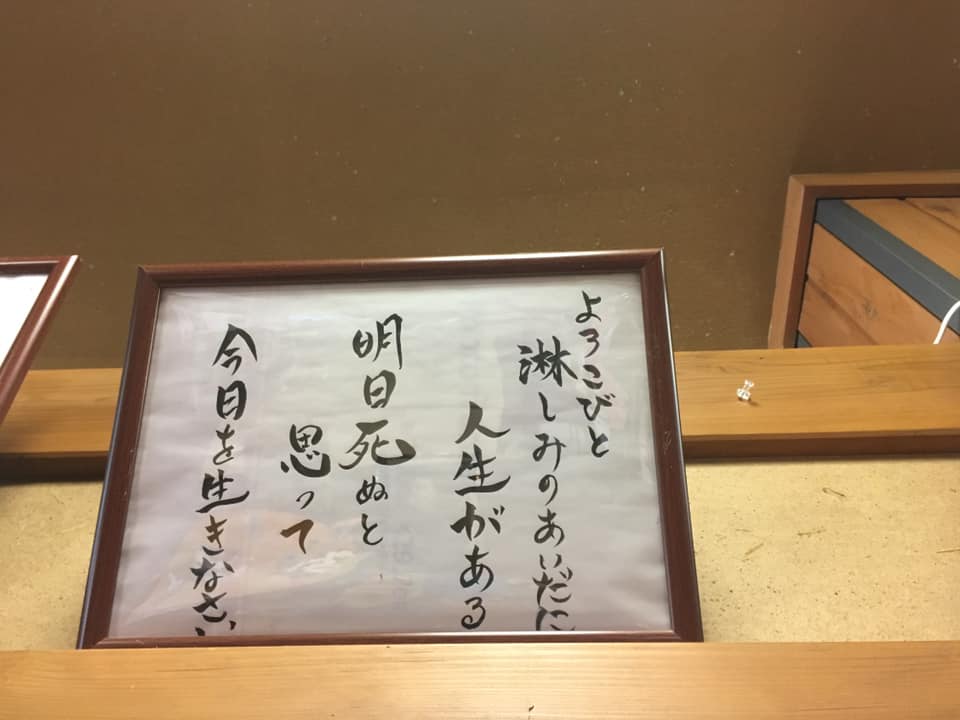 よろこびと
淋しみのあいだに
人生がある
明日死ぬと
思って
今日を生きなさい